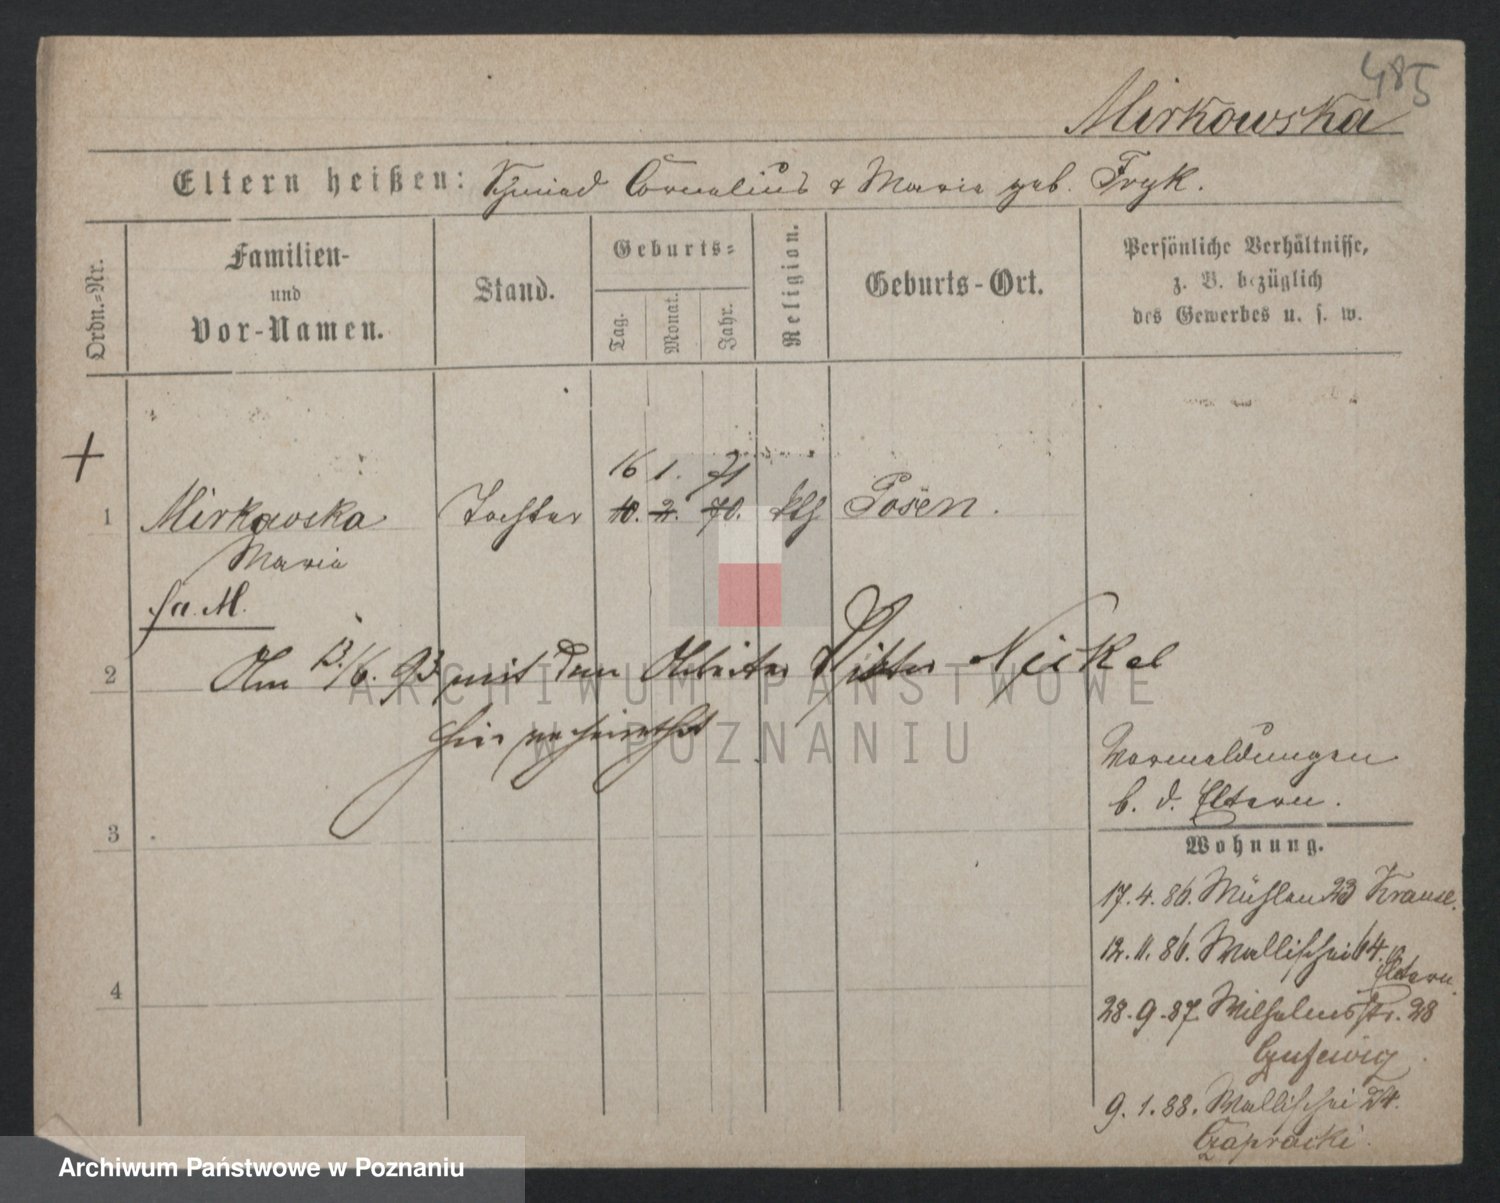 485
Mirkowska
Eltern heißen: Schmied Cornelius & Maria geb. Fryk.
Ordn.=Nr.
Familien-
und
Vor-Namen.
Stand.
Geburts=
Tag.
Monat.
Jahr.
Religion.
Geburts-Ort.
Persönliche Verhältnisse,
z. B. bezüglich
des Gewerbes u. s. w.
+
16 1. 71
1 Mirkowska Tochter 10. 2. 70. kth Posen.
Maria
fa. M.
2 Am 13./6. 93 mit dem Arbeiter Nickel
hier verheirathet
Vormeldungen
b. d. Eltern.
3
Wohnung.
17. 4. 86. Mühlen 23 Krause.
12. 11. 86. Wallischei 64.
Eltern.
4
28. 9. 87. Wilhelmsstr. 28
9. 1. 88. Wallischei 24.
Czapracki.
ARCHIWUM PAŃSTWOWE
W POZNANIU
Archiwum Państwowe w Poznaniu